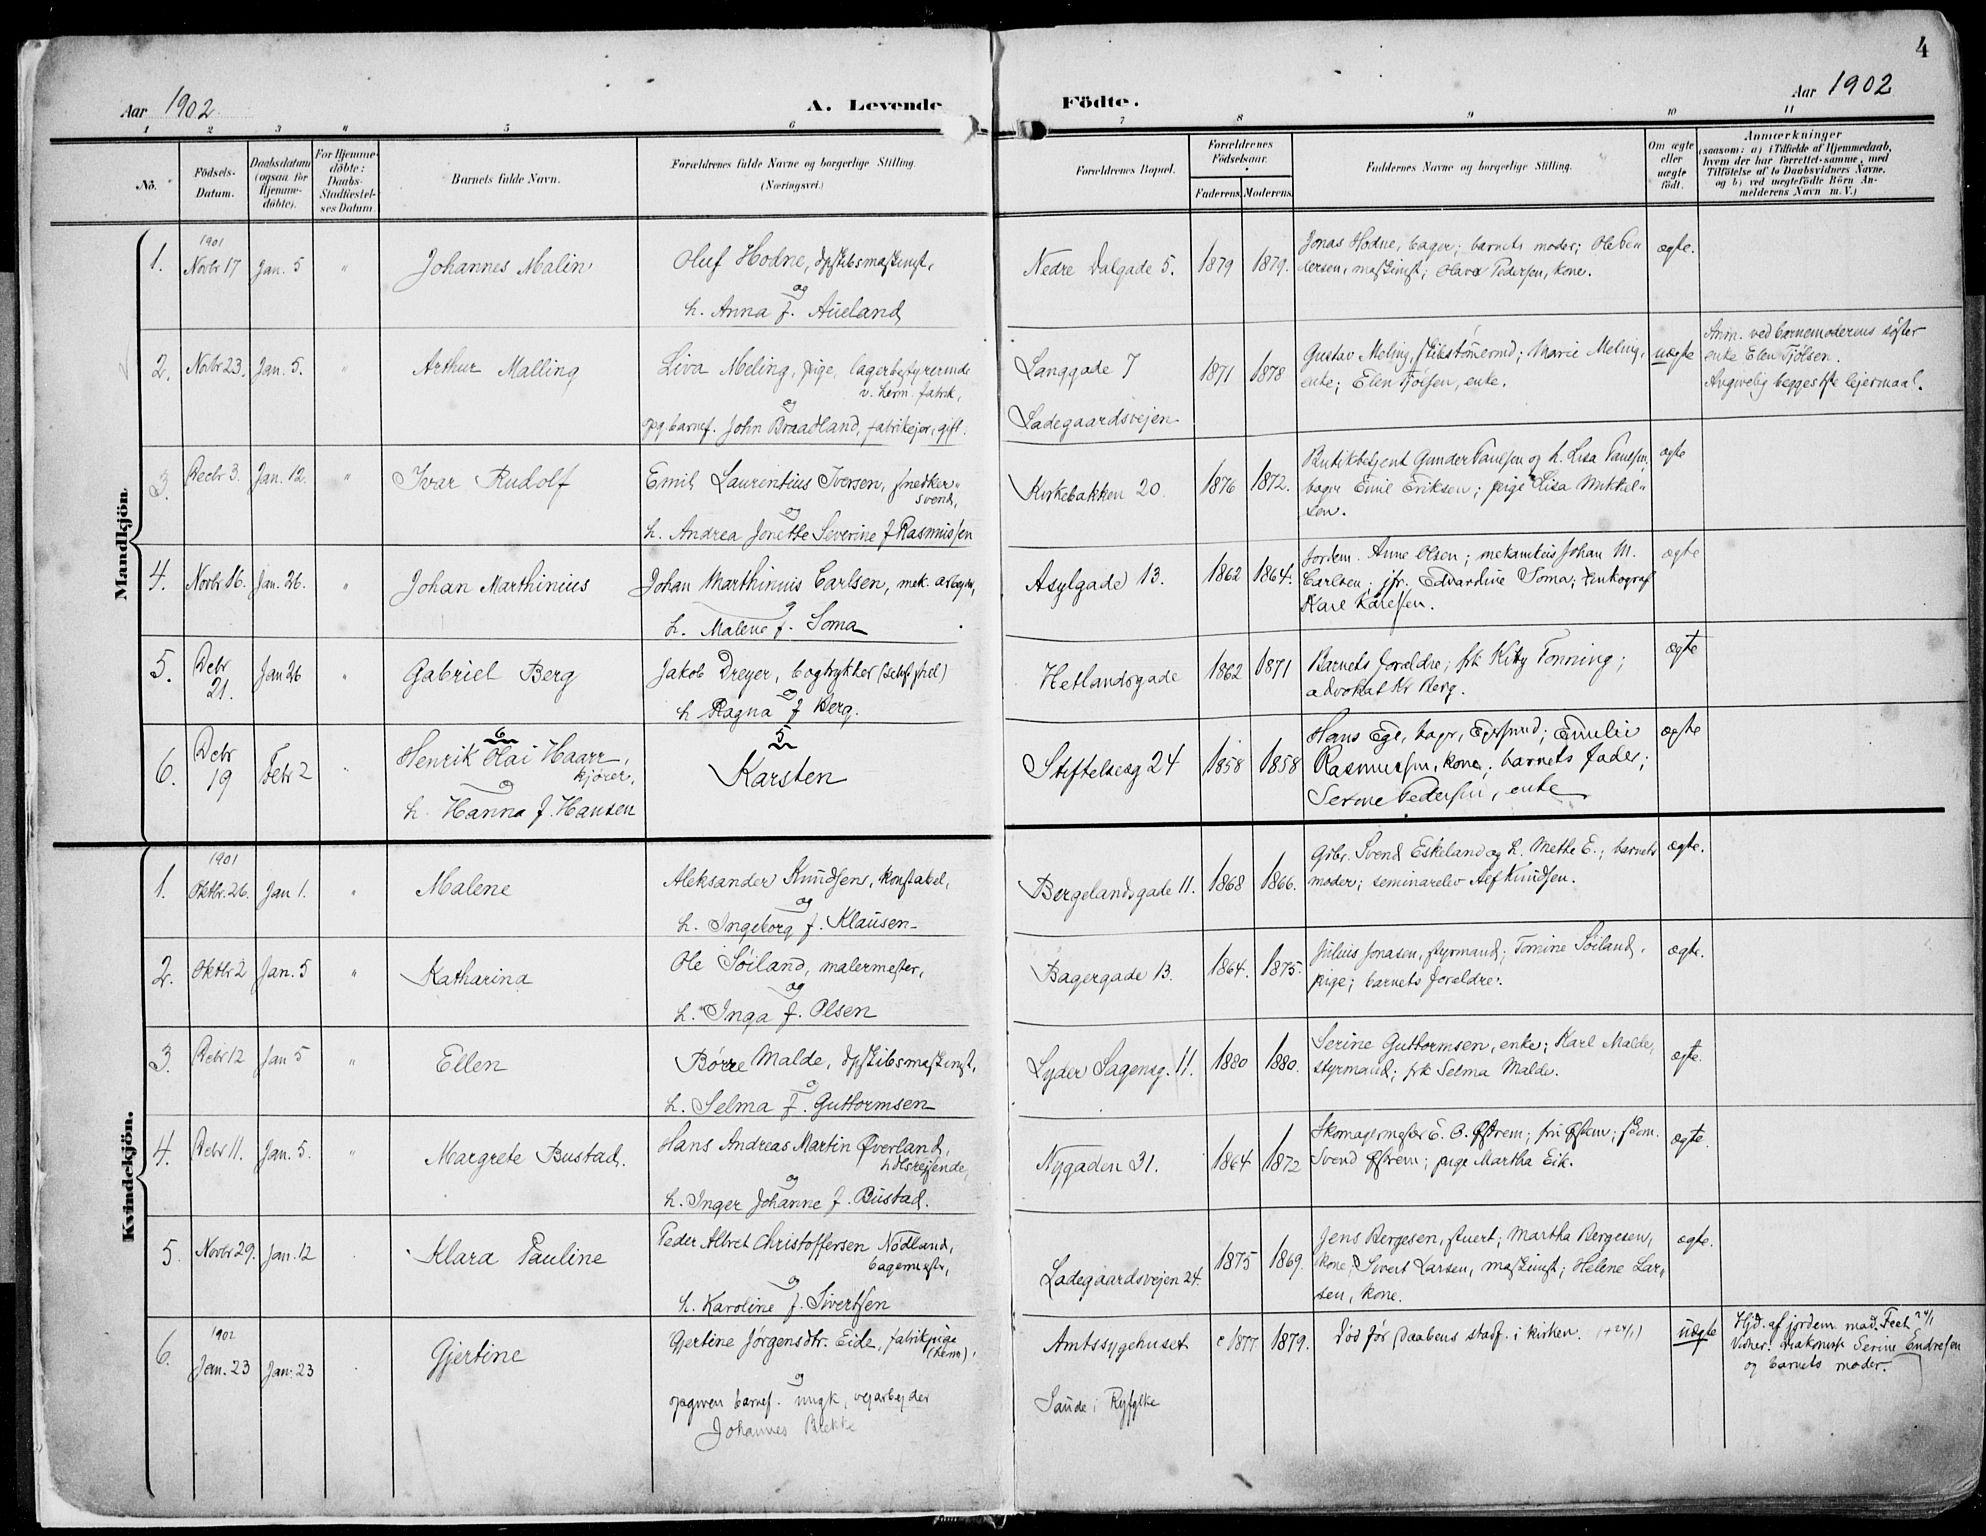 4
Aar 1902
A. Levende Födte.
Aar 1902
1 2 3 " 5 6 7 8 9 10 11
No.
Födsels-
Datum.
Daabsdatum
(ogsaa for
Hjemme-
döbte).
For Hjemme-
döbte:
Daabs-
Stadfæstel-
ses Datum.
Barnets fulde Navn.
Forældrenes fulde Navne og borgerlige Stilling.
(Næringsvei.)
Forældrenes Bopæl.
Forældrenes
Födselsaar.
Faderens. Moderens.
Faddernes Navne og borgerlige Stilling.
Om ægte
eller
uægte
født.
Anmærkninger
(saasom: a) i Tilfælde af Hjemmedaab,
hvem der har forrettet samme, med
Tilföielse af to Daabsvidners Navne,
og b) ved uægtefödte Börn An-
melderens Navn m. V.)
Mandkjön.
1. 1901 Novbr 17 Jan. 5 " Johannes Malin
Oluf Hodne, dpskibsmaskinist,
og
h. Anna f. Aueland
Nedre Dalgade 5. 1879 1879.
Jonas Hodne, bager; barnets moder; Ole Pe-
dersen, maskinist; Olava Pedersen, kone.
ægte.
2. Novbr 23. Jan. 5. " Arthur Malling
Liva Meling, pige, lagerbestyrerinde
v. herm. fabrik,
og
opg. barnef. John Braadland, fabrikejer, gift.
Langgade 7
Ladegaardsvejen
1871 1878
Gustav Meling, skibstømmermd; Marie Meling,
enke; Elen Tjölsen, enke.
uægte
Anm. ved barnemoderens søster
enke Elen Tjölsen.
Angivelig begges 1ste lejermaal.
3. Decbr 3. Jan. 12. " Ivar Rudolf
Emil Laurentius Iversen, snedker-
svend,
og
h. Andrea Jonette Severine f. Rasmussen
Kirkebakken 20. 1876 1872.
Butikbetjent Gunder Paulsen og h. Lisa Paulsen,
bager Emil Eriksen; pige Lisa Mikkel-
sen.
ægte
4. Novbr 16. Jan. 26. " Johan Marthinius
Johan Marthinius Carlsen, mek. arbeyder,
og
h. Malene f. Soma
Asylgade 13. 1862 1864.
Jordem. Anne Olsen; mekanikus Johan M.
Carlsen; jfr. Edvardine Soma; zinkograf
Karl Karlsen.
ægte
5. Debr
21. Jan 26 " Gabriel Berg
Jakob Dreyer, bogtrykker
og
h Ragna f Berg.
Hetlandsgade 1862 1871
Barnets forældre; frk Kitty Tonning;
advokat Kr Berg.
ægte
6. Debr
19 Febr 2 "
6
Henrik Olai Haarr,
kjører,
og
h. Hanna f. Hansen
5
Karsten
Stiftelsesg 24 1858 1858
Hans Ege, bagr, Egersund; Emilie
Rasmussen, kone; barnets fader;
Serine Pedersen, enke
ægte
Kvindekjön.
1. 1901 Oktbr. 26. Jan 1. " Malene
Aleksander Knudsen, konstabel,
og
h. Ingeborg f. Klausen
Bergelandsgade 11. 1868 1866.
Gbr. Svend Eskeland og h. Methe E.; barnets
moder; seminarelev Alf Knudsen.
ægte.
2. Oktbr 2 Jan. 5 " Katharina
Ole Söiland, malermester,
og
h. Inga f. Olsen
Bagergade 13. 1864. 1875.
Julius Jonasen, styrmand; Tomine Söiland,
pige; barnets forældre.
ægte.
3. Debr 12 Jan 5 " Ellen
Börre Malde, dpskibsmaskinist,
og
h. Selma f. Guttormsen
Lyder Sagensg. 11. 1880 1880.
Serine Guttormsen, enke; Karl Malde,
styrmand; frk Selma Malde.
ægte.
4. Debr 11. Jan. 5. " Margrete Bustad.
Hans Andreas Martin Øverland,
hdlsrejsende,
og
h. Inger Johanne f. Bustad.
Nygaden 31. 1864 1872
Skomagermester E. O. Østrem; fru Østrem; skom.
Svend Østrem; pige Martha Eik.
ægte.
5. Novbr 29. Jan. 12 Klara Pauline
Peder Albret Christoffersen Nödland,
bagemester,
og
h. Karoline f. Sivertsen
Ladegaardsvejen 24. 1875 1869.
Jens Bergesen, stuert; Martha Bergesen,
kone; Sivert Larsen, maskinist; Helene Lar-
sen, kone.
ægte.
6. 1902 Jan. 23 Jan. 23 Gjertine
Gjertine Jörgensdtr. Eide, fabrikpige
(herm),
og
opgiven barnef. ungk, vejarbejder
Johannes Brekke
Amtssygehuset
Saude i Ryfylke
c 1877 1879.
Död för daabens stadf. i kirken. (+24/1)
uægte
Hjd. af jordem. mad. Feet 24/1
Vidner: diakonisse Serine Endresen
og barnets moder.